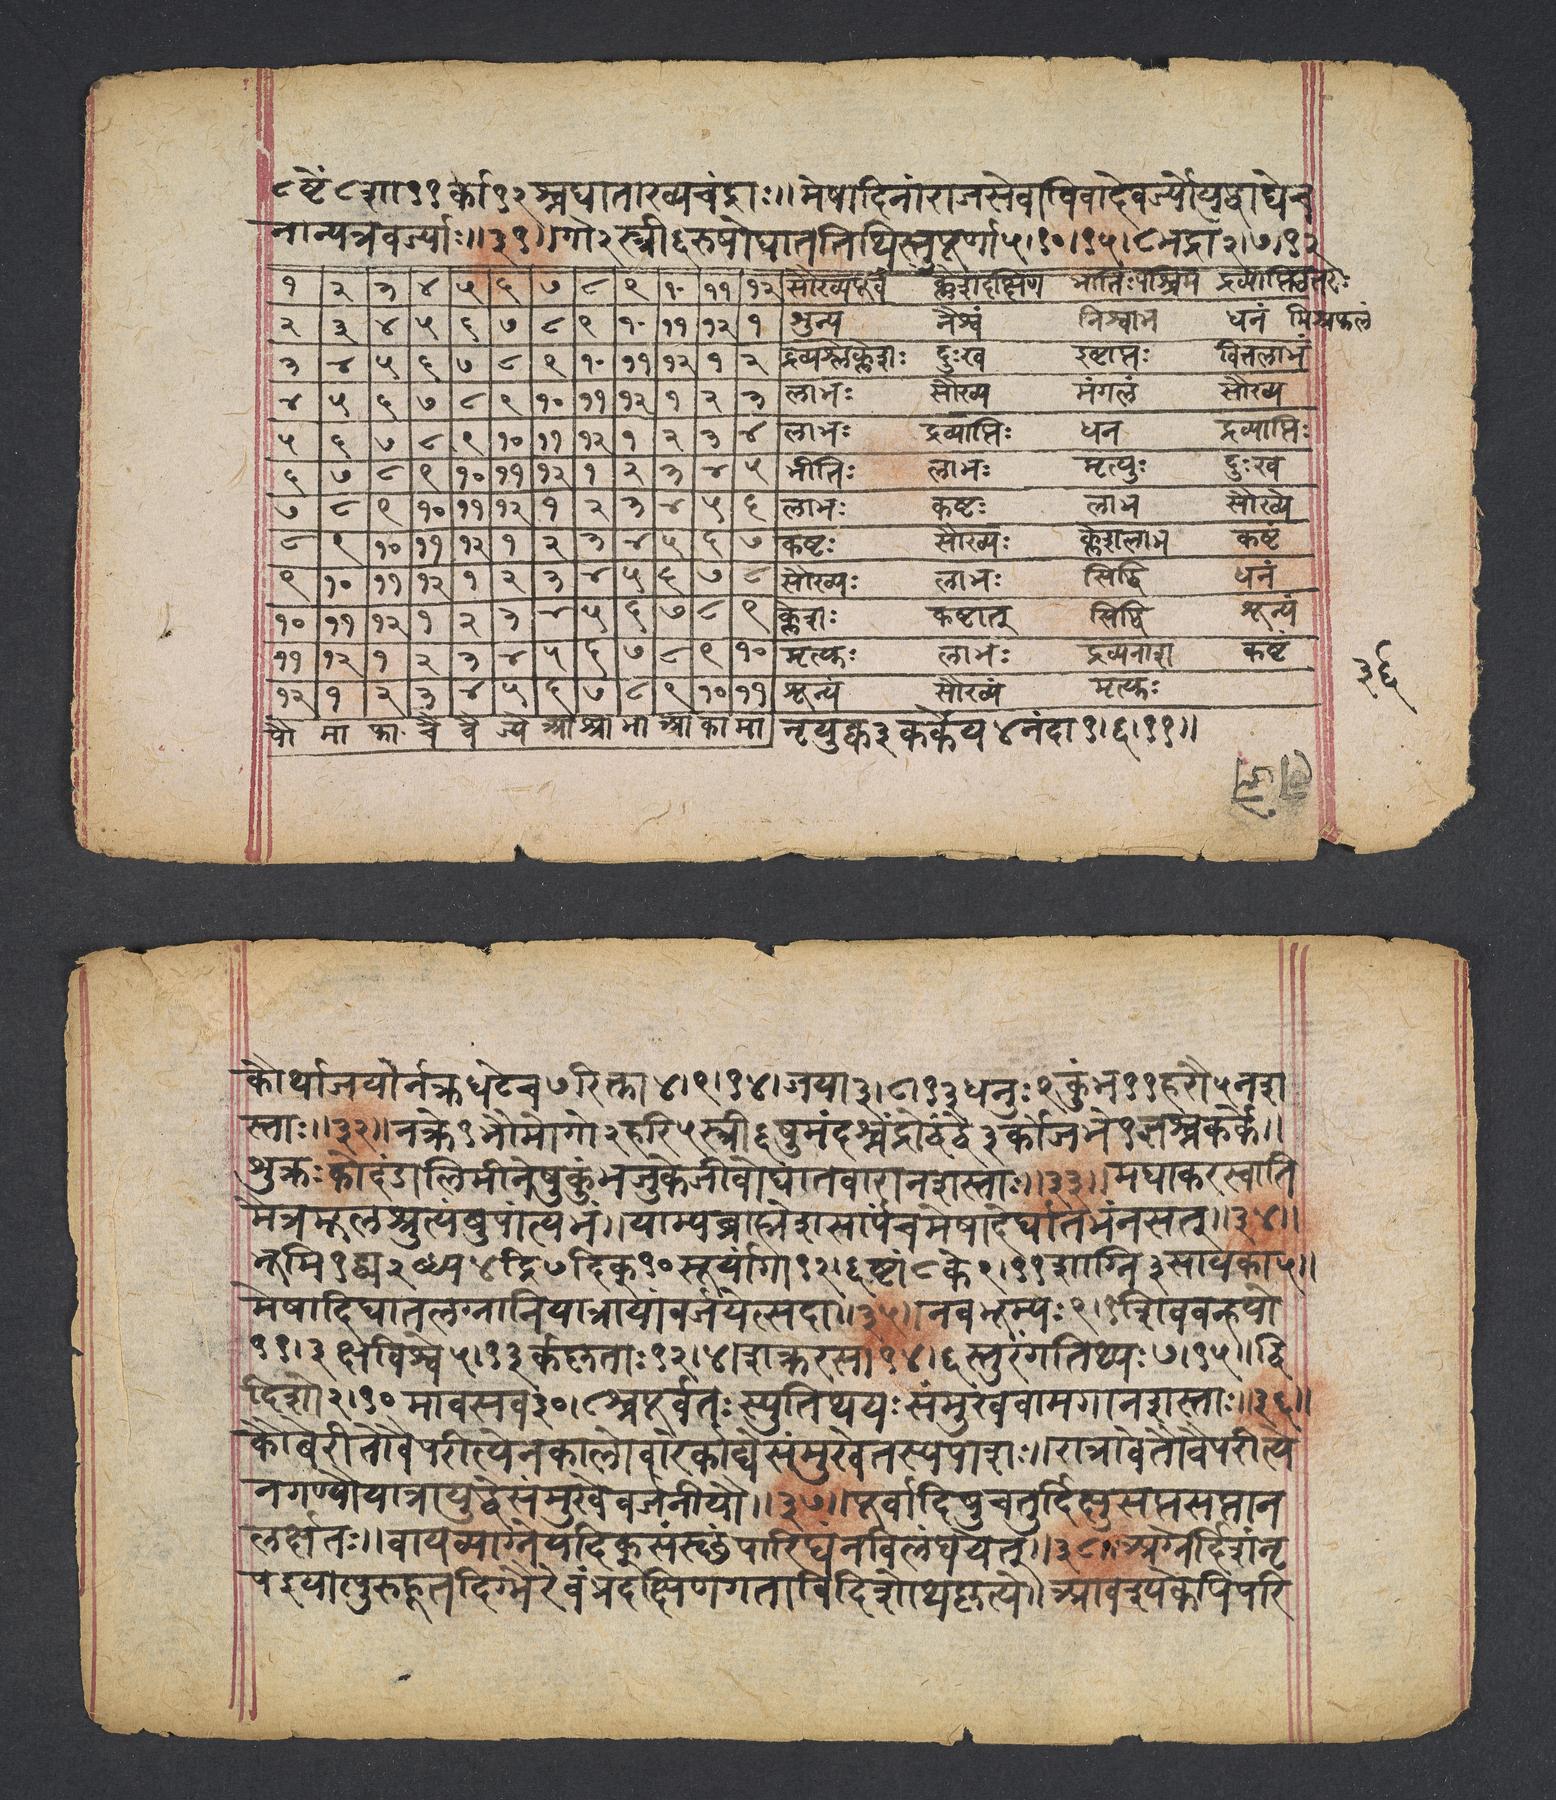 ८ष्टें ८शा११र्का१२श्वघाताख्यचंद्राः॥ मेषादिनांराजसेवाविवादेवर्ज्योयुद्धाद्येच
नान्यत्रवर्ज्याः॥३१॥गो२स्त्री६झषोघाततिथिस्तुपूर्णा५।१०।१५।८भद्रा२।७।१२
१ २ ३ ४ ५ ६ ७ ८ ९ १० ११ १२ सौख्यपूर्वे क्लेशदक्षिण भीतिःपश्चिम द्रव्याप्तिउत्तरेः
२ ३ ४ ५ ६ ७ ८ ९ १० ११ १२ १ शुन्य नैश्वं निश्वाभ धनं मिश्रफलं
३ ४ ५ ६ ७ ८ ९ १० ११ १२ १ २ द्रव्यक्लेशः दुःख इष्टाप्तः वित्तलाभं
४ ५ ६ ७ ८ ९ १० ११ १२ १ २ ३ लाभः सौख्य मंगलं सौख्य
५ ६ ७ ८ ९ १० ११ १२ १ २ ३ ४ लाभः द्रव्याप्तिः धन द्रव्याप्तिः
६ ७ ८ ९ १० ११ १२ १ २ ३ ४ ५ भीतिः लाभः मृत्युः दुःख
७ ८ ९ १० ११ १२ १ २ ३ ४ ५ ६ लाभः कष्टः लाभ सौख्ये
८ ९ १० ११ १२ १ २ ३ ४ ५ ६ ७ कष्टः सौख्यः क्लेशलाभ कष्टं
९ १० ११ १२ १ २ ३ ४ ५ ६ ७ ८ सौख्यः लाभः सिद्धि धनं
१० ११ १२ १ २ ३ ४ ५ ६ ७ ८ ९ क्लेशः कष्टातु सिद्धि शून्यं
११ १२ १ २ ३ ४ ५ ६ ७ ८ ९ १० मृत्युः लाभः द्रव्यनाश कष्टं
३६
१२ १ २ ३ ४ ५ ६ ७ ८ ९ १० ११ शून्यं सौख्यं मृत्युः
पौ मा फा चै वै ज्ये आ श्रा भा आ का मा नृयुक्क३कर्केय४नंदा१।६।११॥
कौर्थाजयोर्नक्रधटेच७रिक्ता४।९।१४।जया३।८।१३धनुः९कुंभ११हरौ५नश
स्ताः॥३२॥नक्रे१भौमोगो२हरि५स्त्री६षुमंदश्चंद्रोद्वंद्वे३र्कोजभे१ज्ञश्चकर्के॥
शुक्रःकोदंडालिमीनेषुकुंभजुकेजीवोघातवारानशस्ताः॥३३॥मघाकरस्वाति
मैत्रमूलश्रुत्यंबुपांत्यभं॥याम्यब्राह्मेशसार्पंचमेषादेर्घातभंनसत्॥३४॥
भूमि१द्व्य२ब्ध्य४द्रि७दिक्१०सूर्यांगा१२।६ष्टां८के९।११शाग्नि३सायका५॥
मेषादिघातलग्नानियात्रायांवर्जयेत्सदा॥३५॥नवभूम्यः९।१शिववन्हयो
११।३क्षविश्वे५।१३र्ककृताः१२।४।शक्ररसा१४।६स्तुरंगतिथ्यः७।१५॥द्वि
दिशो२।१०मावसव३०।८श्वपूर्वतःस्युतिथयःसंमुखवामगानशस्ताः॥३६॥
कौबेरीतोवैपरीत्येनकालोवारेर्काद्येसंमुखेतस्यपाशः॥रात्रावेतौवैपरीत्ये
नगण्यौयात्रायुद्धेसंमुखेवर्जनीयौ॥३७॥पूर्वादिषुचतुर्दिक्षुसप्तसप्तान
लर्क्षतः॥वायव्याग्नेयदिक्संस्थंपारिघंनविलंघयेत्॥३८॥अग्नेर्दिशंनृ
पइयात्पुरुहूतदिग्भैरेवंप्रदक्षिणगताविदिशोथकृत्ये॥आवश्यकेपिपरि